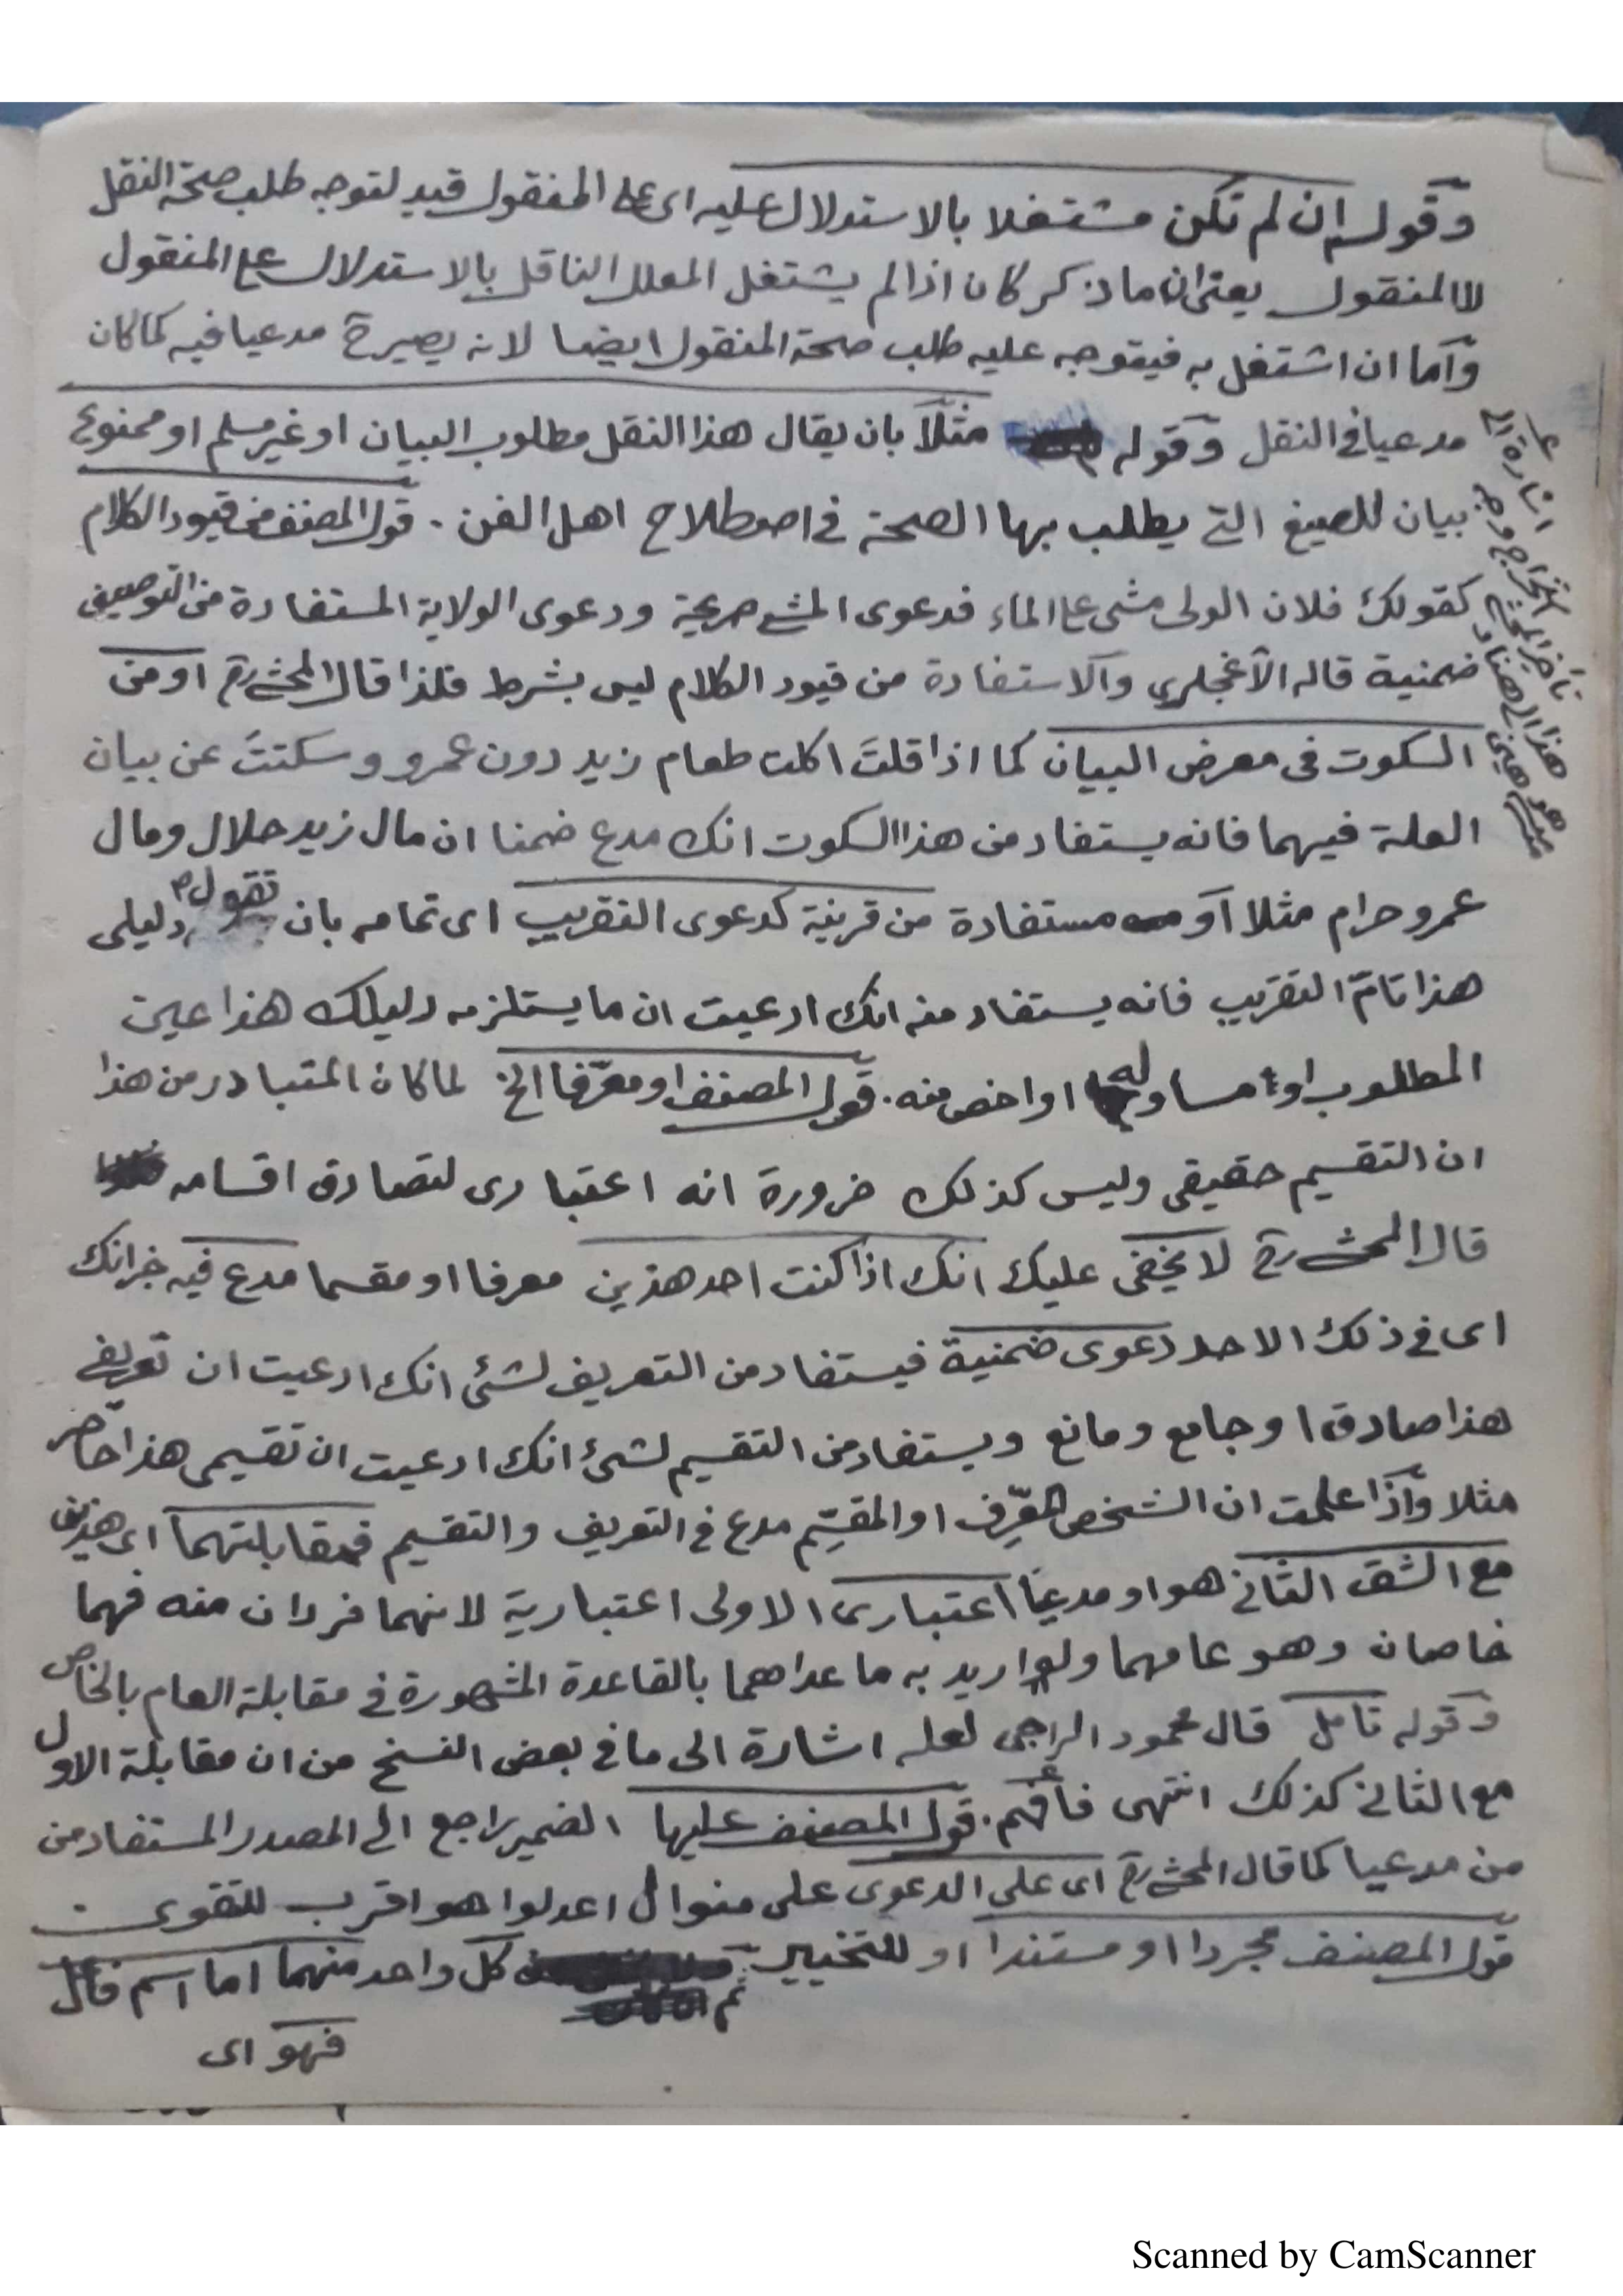 وقوله ان لم تكن مشتغلا بالاستدلال عليه اى على المنقول قيد لتوجه طلب صحة النقل
لا المنقول يعنى ان ما ذكر كان اذا لم يشتغل المعلل الناقل بالاستدلال على المنقول
وأما ان اشتغل به فيتوجه عليه طلب صحة المنقول ايضا لانه يصير ح مدعيا فيه كما كان
مدعيا فى النقل وقوله مثلاً بان يقال هذا النقل مطلوب البيان او غير مسلم او ممنوع
بيان للصيغ التى يطلب بها الصحة فى اصطلاح اهل الفن . قول المصنف من قيود الكلام
كقولك فلان الولى مشى على الماء فدعوى المشى صريحة ودعوى الولاية المستفادة من التوصيف
ضمنية قاله الآغجلري والاستفادة من قيود الكلام ليس بشرط فلذا قال المحشى رح او من
السكوت فى معرض البيان كما اذا قلتَ اكلت طعام زيد دون عمرو وسكتتَ عن بيان
العلة فيهما فانه يستفاد من هذا السكوت انك مدع ضمنا ان مال زيد حلال ومال
عمرو حرام مثلا أو مستفادة من قرينة كدعوى التقريب اى تمامه بان تقول دليلى
هذا تامّ التقريب فانه يستفاد منه انك ادعيت ان ما يستلزمه دليلك هذا عين
المطلوب او مساو له او اخص منه . قول المصنف او معرّفا الخ لما كان المتبادر من هذا
ان التقسيم حقيقى وليس كذلك ضرورة انه اعتبارى لتصادق اقسامه
قال المحشى رح لا يخفى عليك انك اذا كنت احد هذين معرفا او مقسما مدع فيه خبر انك
اى فى ذلك الاحد دعوى ضمنية فيستفاد من التعريف لشئ انك ادعيت ان تعريفى
هذا صادق او جامع ومانع ويستفاد من التقسيم لشئ انك ادعيت ان تقسيمى هذا حاصر
مثلا وأذا علمت ان الشخص المعرّف او المقسّم مدع فى التعريف والتقسيم فمقابلتهما اى هذين
مع الشق الثانى هو او مدعيا اعتبارى الاولى اعتبارية لانهما فردان منه فهما
خاصان وهو عامهما ولو اريد به ما عداهما بالقاعدة المشهورة فى مقابلة العام بالخاص
وقوله تامل قال محمود الراجى لعله اشارة الى ما فى بعض النسخ من ان مقابلة الاول
مع الثانى كذلك انتهى فأفهم . قول المصنف عليها الضمير راجع الى المصدر المستفاد من
من مدعيا كما قال المحشى رح اى على الدعوى على منوال اعدلوا هو اقرب للتقوى
قول المصنف مجردا او مستندا او للتخيير ثم كل واحد منهما اما اسم فاعل
فهو اى